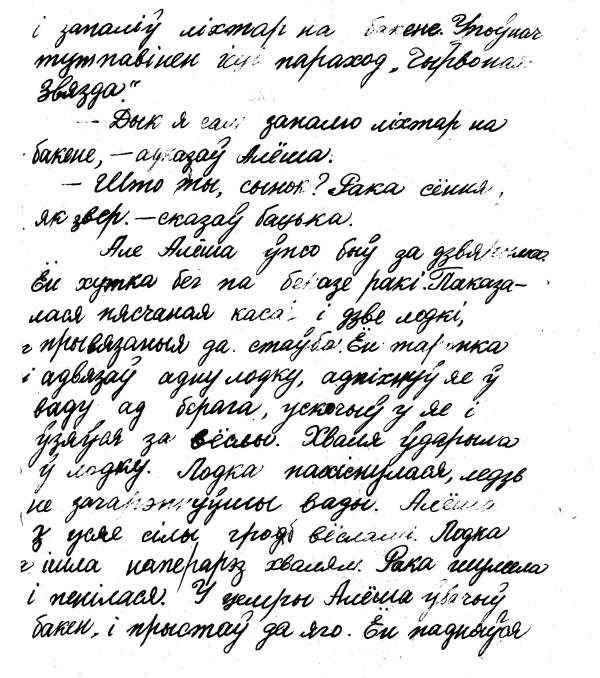 і запаліў ліхтар на бакене. Упоўнач
тутпавінен ісці параход „Чырвоная
Звязда."
— Дык я сам запалю ліхтар на
бакене, — адказаў Алёша.
— Што ты, сынок? Рака сёння,
як звер. — сказаў бацька.
Але Алёша ўжо быў за дзвярыма.
Ён хутка бег па беразе ракі. Паказа-
лася пясчаная каса і дзве лодкі,
прывязаныя да стаўба. Ён таропка
адвязаў адну лодку, адпіхнуў яе ў
ваду ад берага, ускочыў у яе і
ўзяўся за вёслы. Хваля ўдарыла
ў лодку. Лодка пахіснулася, ледзь
не зачарпнуўшы вады. Алёша
з усяе сілы гроб вёсламі. Лодка
ішла наперарэз хвалям. Рака шумела
і пенілася. У цемры Алёша ўбачыў
бакен, і прыстаў да яго. Ён падняўся